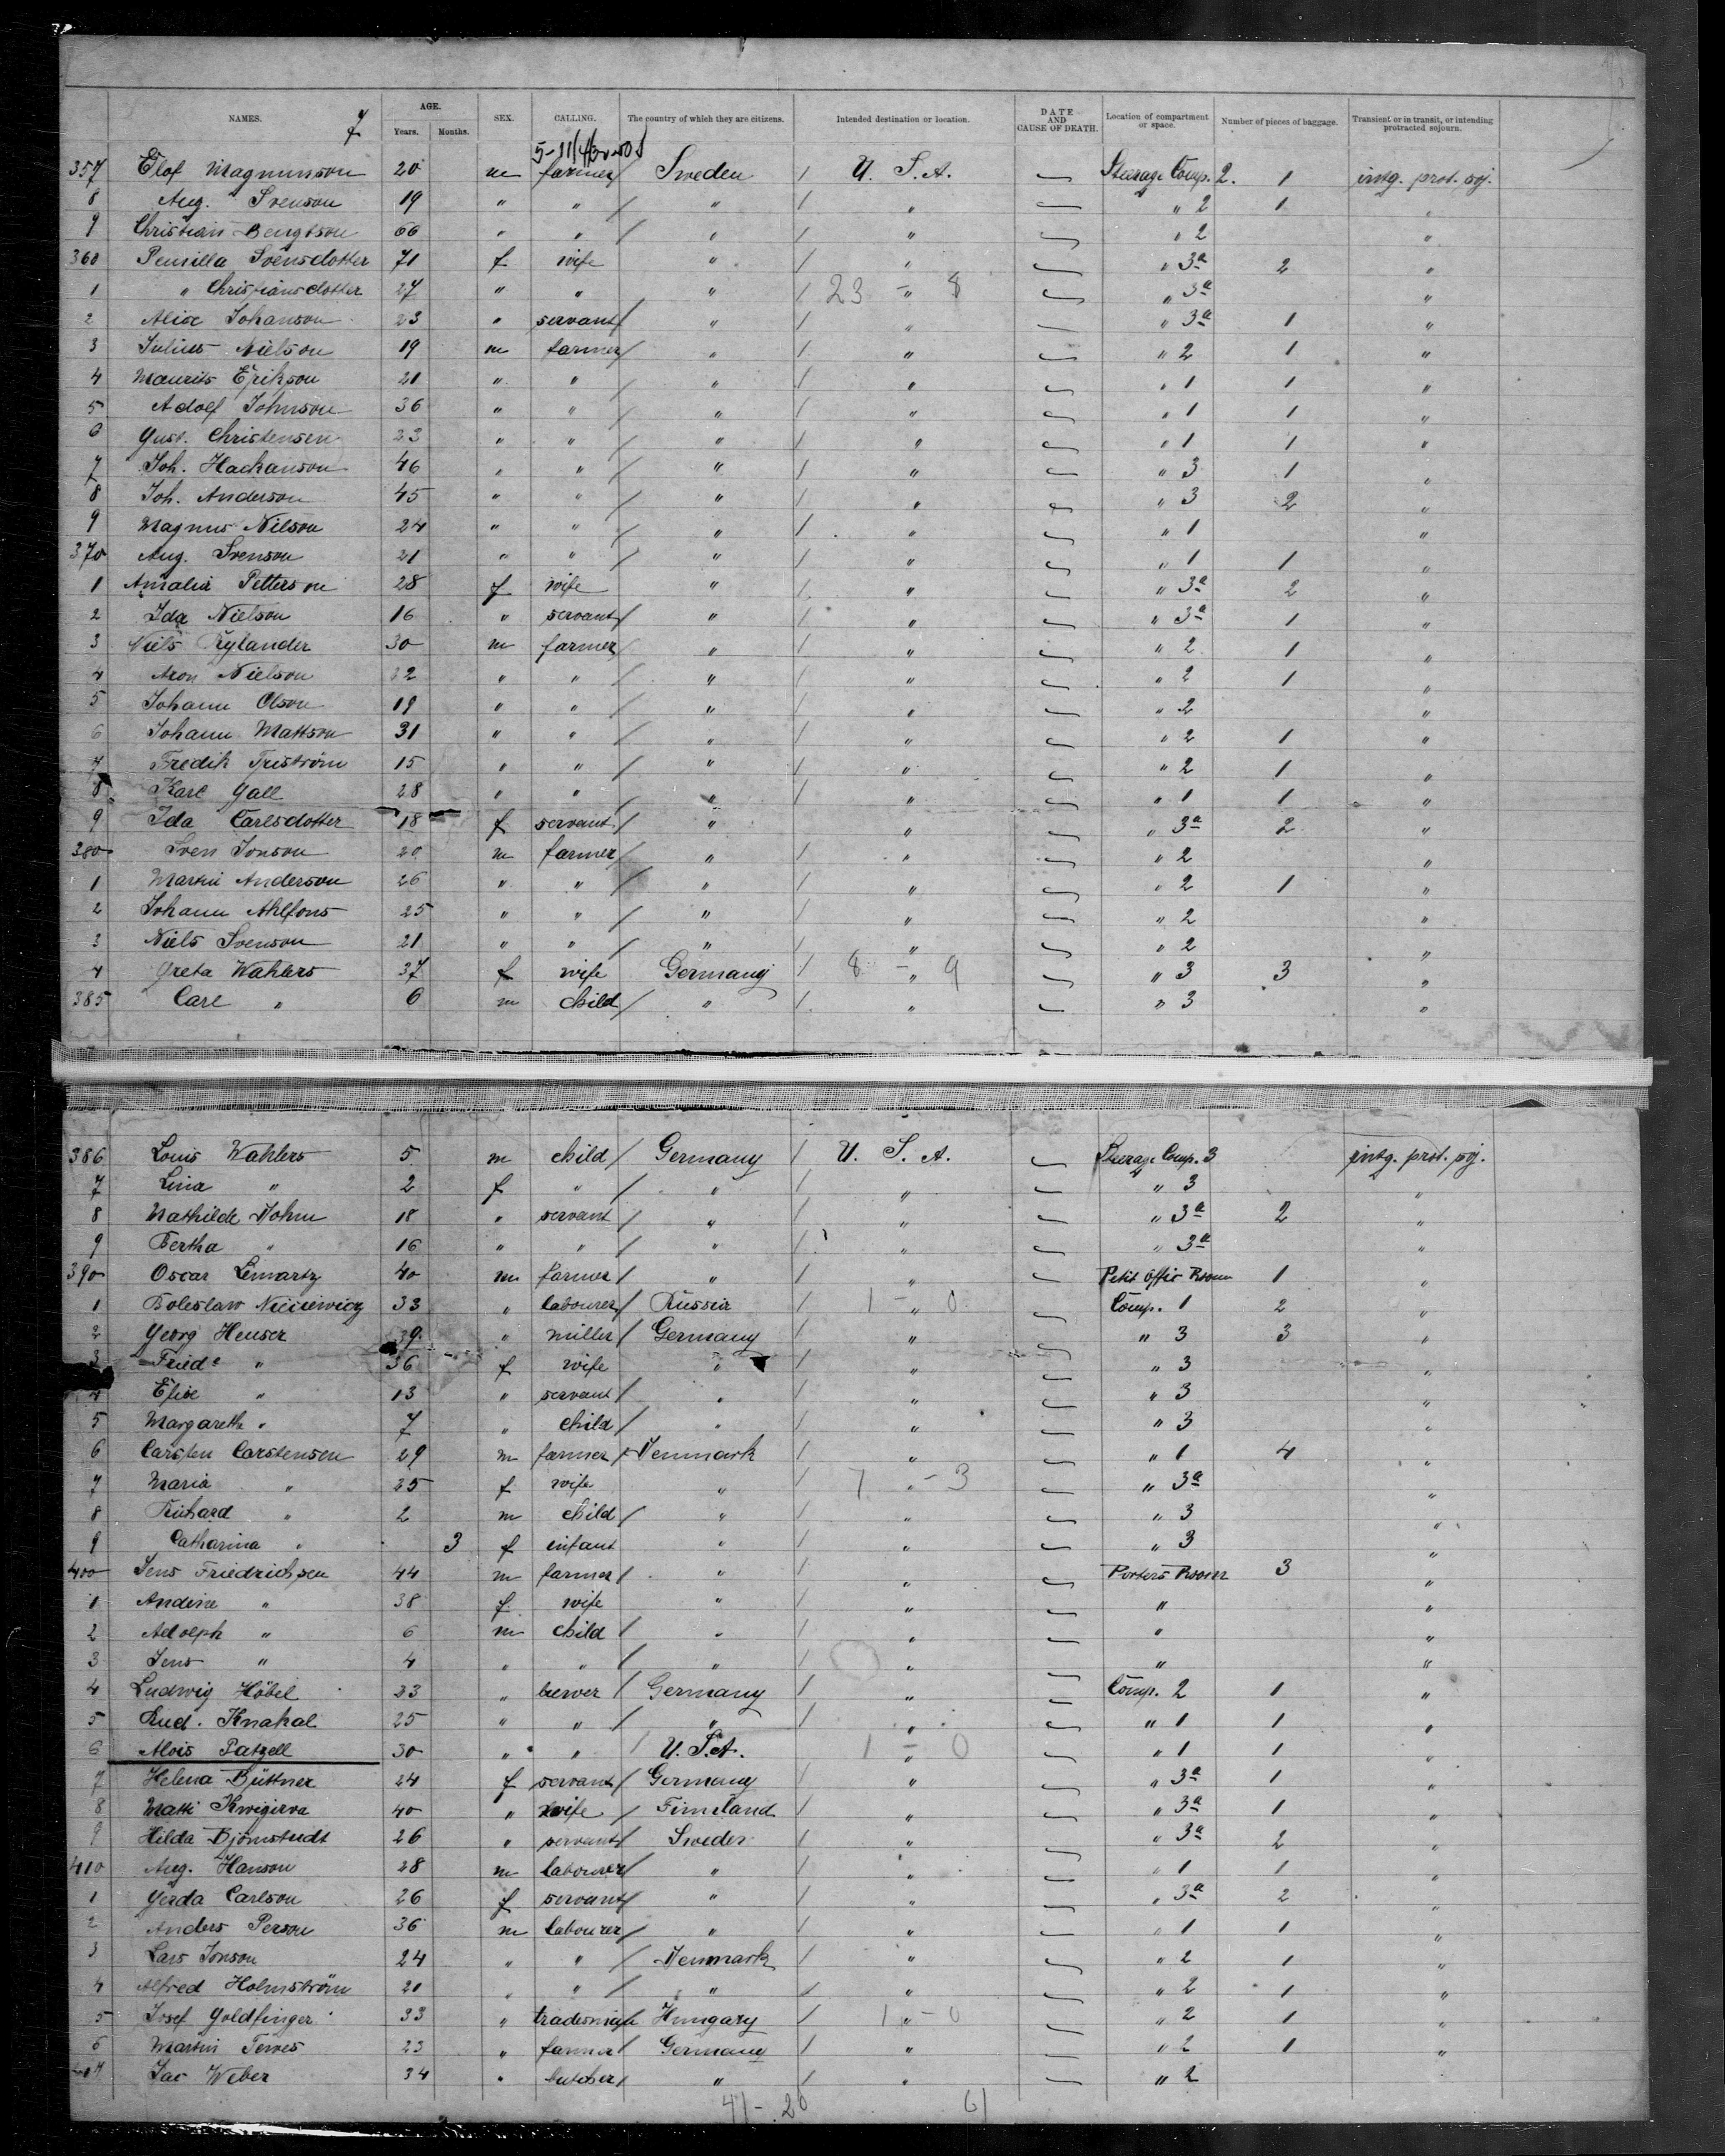 7
NAMES. AGE. Years. Months. SEX. CALLING. The country of which they are citizens. Intended destination or location. DATE AND CAUSE OF DEATH. Location of compartment or space. Number of pieces of baggage. Transient or in transit, or intending protracted sojourn.
357 Elof Magnunson 20 m farmer / Sweden / U. S. A. Steerage Comp. 2. 1 intg. prot. soj.
8 Aug. Svenson 19 " " / " / " " 2 1 "
9 Christian Bengtson 66 " " / " / " " 2 "
360 Pernilla Svensdotter 71 f wife " / " " 3a 2 "
1 " Christiansdotter 27 " " " / 23 - 8 " " 3a "
2 Alice Johanson 23 " servant / " / " " 3a 1 "
3 Julius Nielson 19 m farmer / " / " " 2 1 "
4 Maurits Erikson 21 " " / " / " " 1 1 "
5 Adolf Johnson 36 " " / " / " " 1 1 "
6 Gust. Christensen 23 " " / " / " " 1 1 "
7 Joh. Hackanson 46 " " / " / " " 3 1 "
8 Joh. Anderson 45 " " / " / " " 3 2 "
9 Magnus Nilson 24 " " / " / " " 1 "
370 Aug. Svenson 21 " " / " / " " 1 1 "
1 Amalia Petterson 28 f wife " / " " 3a 2 "
2 Ida Nielson 16 " servant / " / " " 3a 1 "
3 Niels Rylander 30 m farmer / " / " " 2 1 "
4 Aron Nielson 22 " " / " / " " 2 1 "
5 Johann Olson 19 " " / " / " " 2 "
6 Johann Mattson 31 " " / " / " " 2 1 "
7 Fredik 15 " " / " / " " 2 1 "
8 Karl Gall 28 " " / " / " " 1 1 "
9 Ida Carlsdotter 18 f servant / " / " " 3a 2 "
380 Sven Jonson 20 m farmer / " / " " 2 "
1 Martin Anderson 26 " " / " / " " 2 1 "
2 Johann Ahlfons 25 " " / " / " " 2 "
3 Niels Svenson 21 " " / " / " " 2 "
4 Greta Wahlers 37 f wife Germany / 8 - 9 " " 3 3 "
385 Carl " 6 m child / " / " " 3 "
386 Louis Wahlers 5 m child / Germany / U. S. A. Steerage Comp. 3 intg. prot. soj.
7 Lina " 2 f " / " / " " 3 "
8 Mathilde Dohm 18 " servant / " / " " 3a 2 "
9 Bertha " 16 " " / " / " " 3a "
390 Oscar Lemartz 40 m farmer / " / " Petit Offic Room 1 "
1 Boleslaw 33 " labourer / Russia / 1 - 0 " Comp. 1 2 "
2 Georg Heuser 39 " miller / Germany / " " 3 3 "
3 Friede " 36 f wife " / " " 3 "
4 Elise " 13 " servant / " / " " 3 "
5 Margareth " 7 " child / " / " " 3 "
6 Carsten Carstensen 29 m farmer / Denmark / " " 1 4 "
7 Maria " 25 f wife " / 7 - 3 " " 3a "
8 Richard " 2 m child / " / " " 3 "
9 Catharina " 3 f infant " / " " 3 "
400 Jens Friedrichsen 44 m farmer / " / " Porters Room 3 "
1 Andine " 38 f wife " / " " "
2 Adolph " 6 m child / " / " " "
3 Jens " 4 " " / " / " " "
4 Ludwig Höbel 33 " brewer / Germany / " Comp. 2 1 "
5 Rud. Knakal 25 " " / " / " " 1 1 "
6 Alois Patzell 30 " " / U. S. A. 1 - 0 " " 1 1 "
7 Helena Büttner 24 f servant / Germany / " " 3a 1 "
8 Matti 40 " wife / Finnland / " " 3a 1 "
9 Hilda Björnstedt 26 " servant / Sweden / " " 3a 2 "
410 Aug. Hanson 28 m labourer / " / " " 1 1 "
1 Gerda Carlson 26 f servant / " / " " 3a 2 "
2 Anders Person 36 m labourer / " / " " 1 1 "
3 Lars Jonson 24 " " / Denmark / " " 2 1 "
4 Alfred Holmström 21 " " / " / " " 2 1 "
5 Josef Goldfinger 33 " tradesman Hungary / 1 - 0 " " 2 1 "
6 Martin Terves 23 " farmer / Germany / " " 2 1 "
Jac Weber 34 " butcher / " / " " 2
41 - 20 61